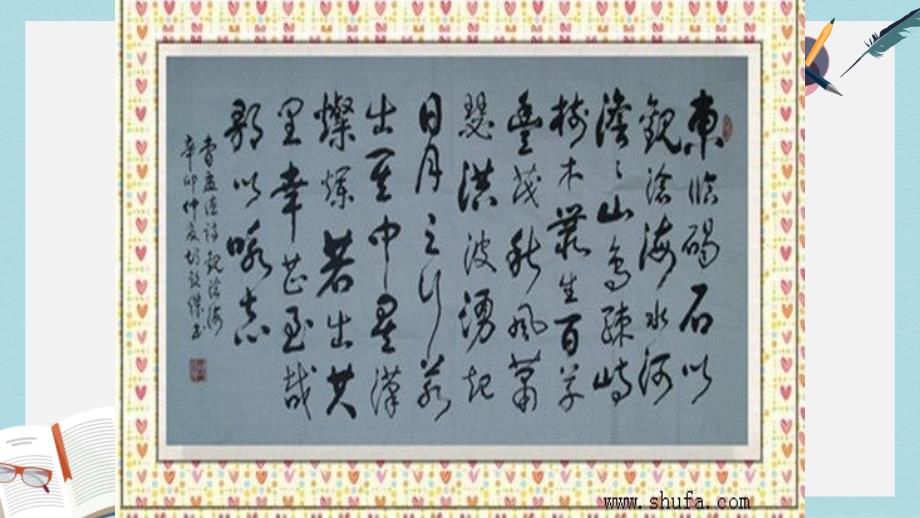 東臨碣石以
觀滄海水何
澹々山島竦峙
樹木叢生百草
豐茂秋風蕭
瑟洪波湧起
日月之行若
出其中星漢
燦爛若出其
里幸甚至哉
歌以咏志
曹孟德詩觀滄海
辛卯仲夏
www.shufa.com